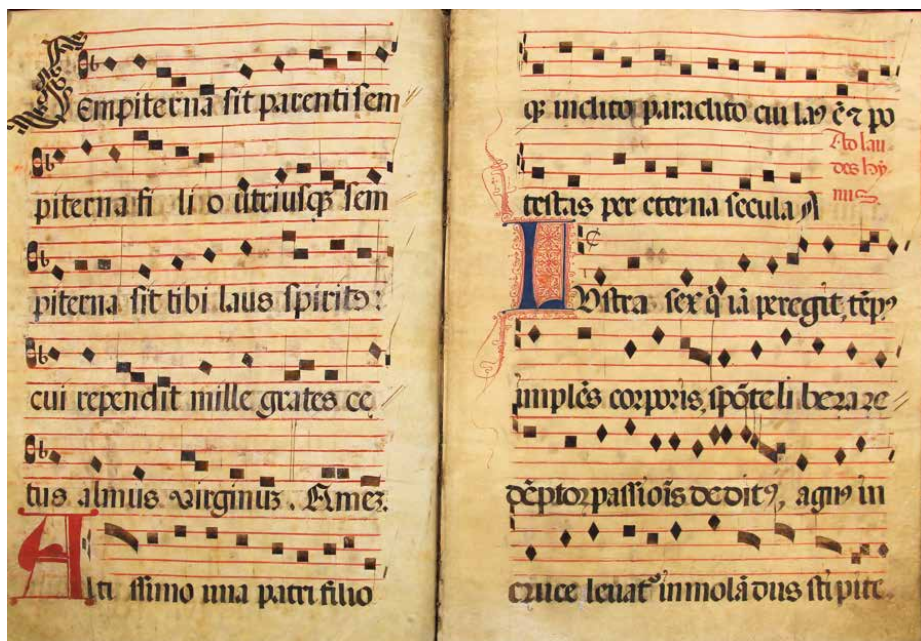 Sempiterna sit parenti sem
piterna fi li o utriusqȝ sem
piterna sit tibi laus spirits:
cui rependit mille grates ce
tus almus virginuȝ. Ameȝ.
Alti ssimo una patri filio
qȝ inclito paraclito cui laꝰ ē ⁊ po
testas per eterna secula A
Ad lau
des hy
mus
Lustra sex q̄ iā peregit, tēpꝰ
implēs corporis, spōte li bera re
dēptor passiōis de ditꝰ, agnꝰ in
cruce leuatᷣ inmolādus sti pite